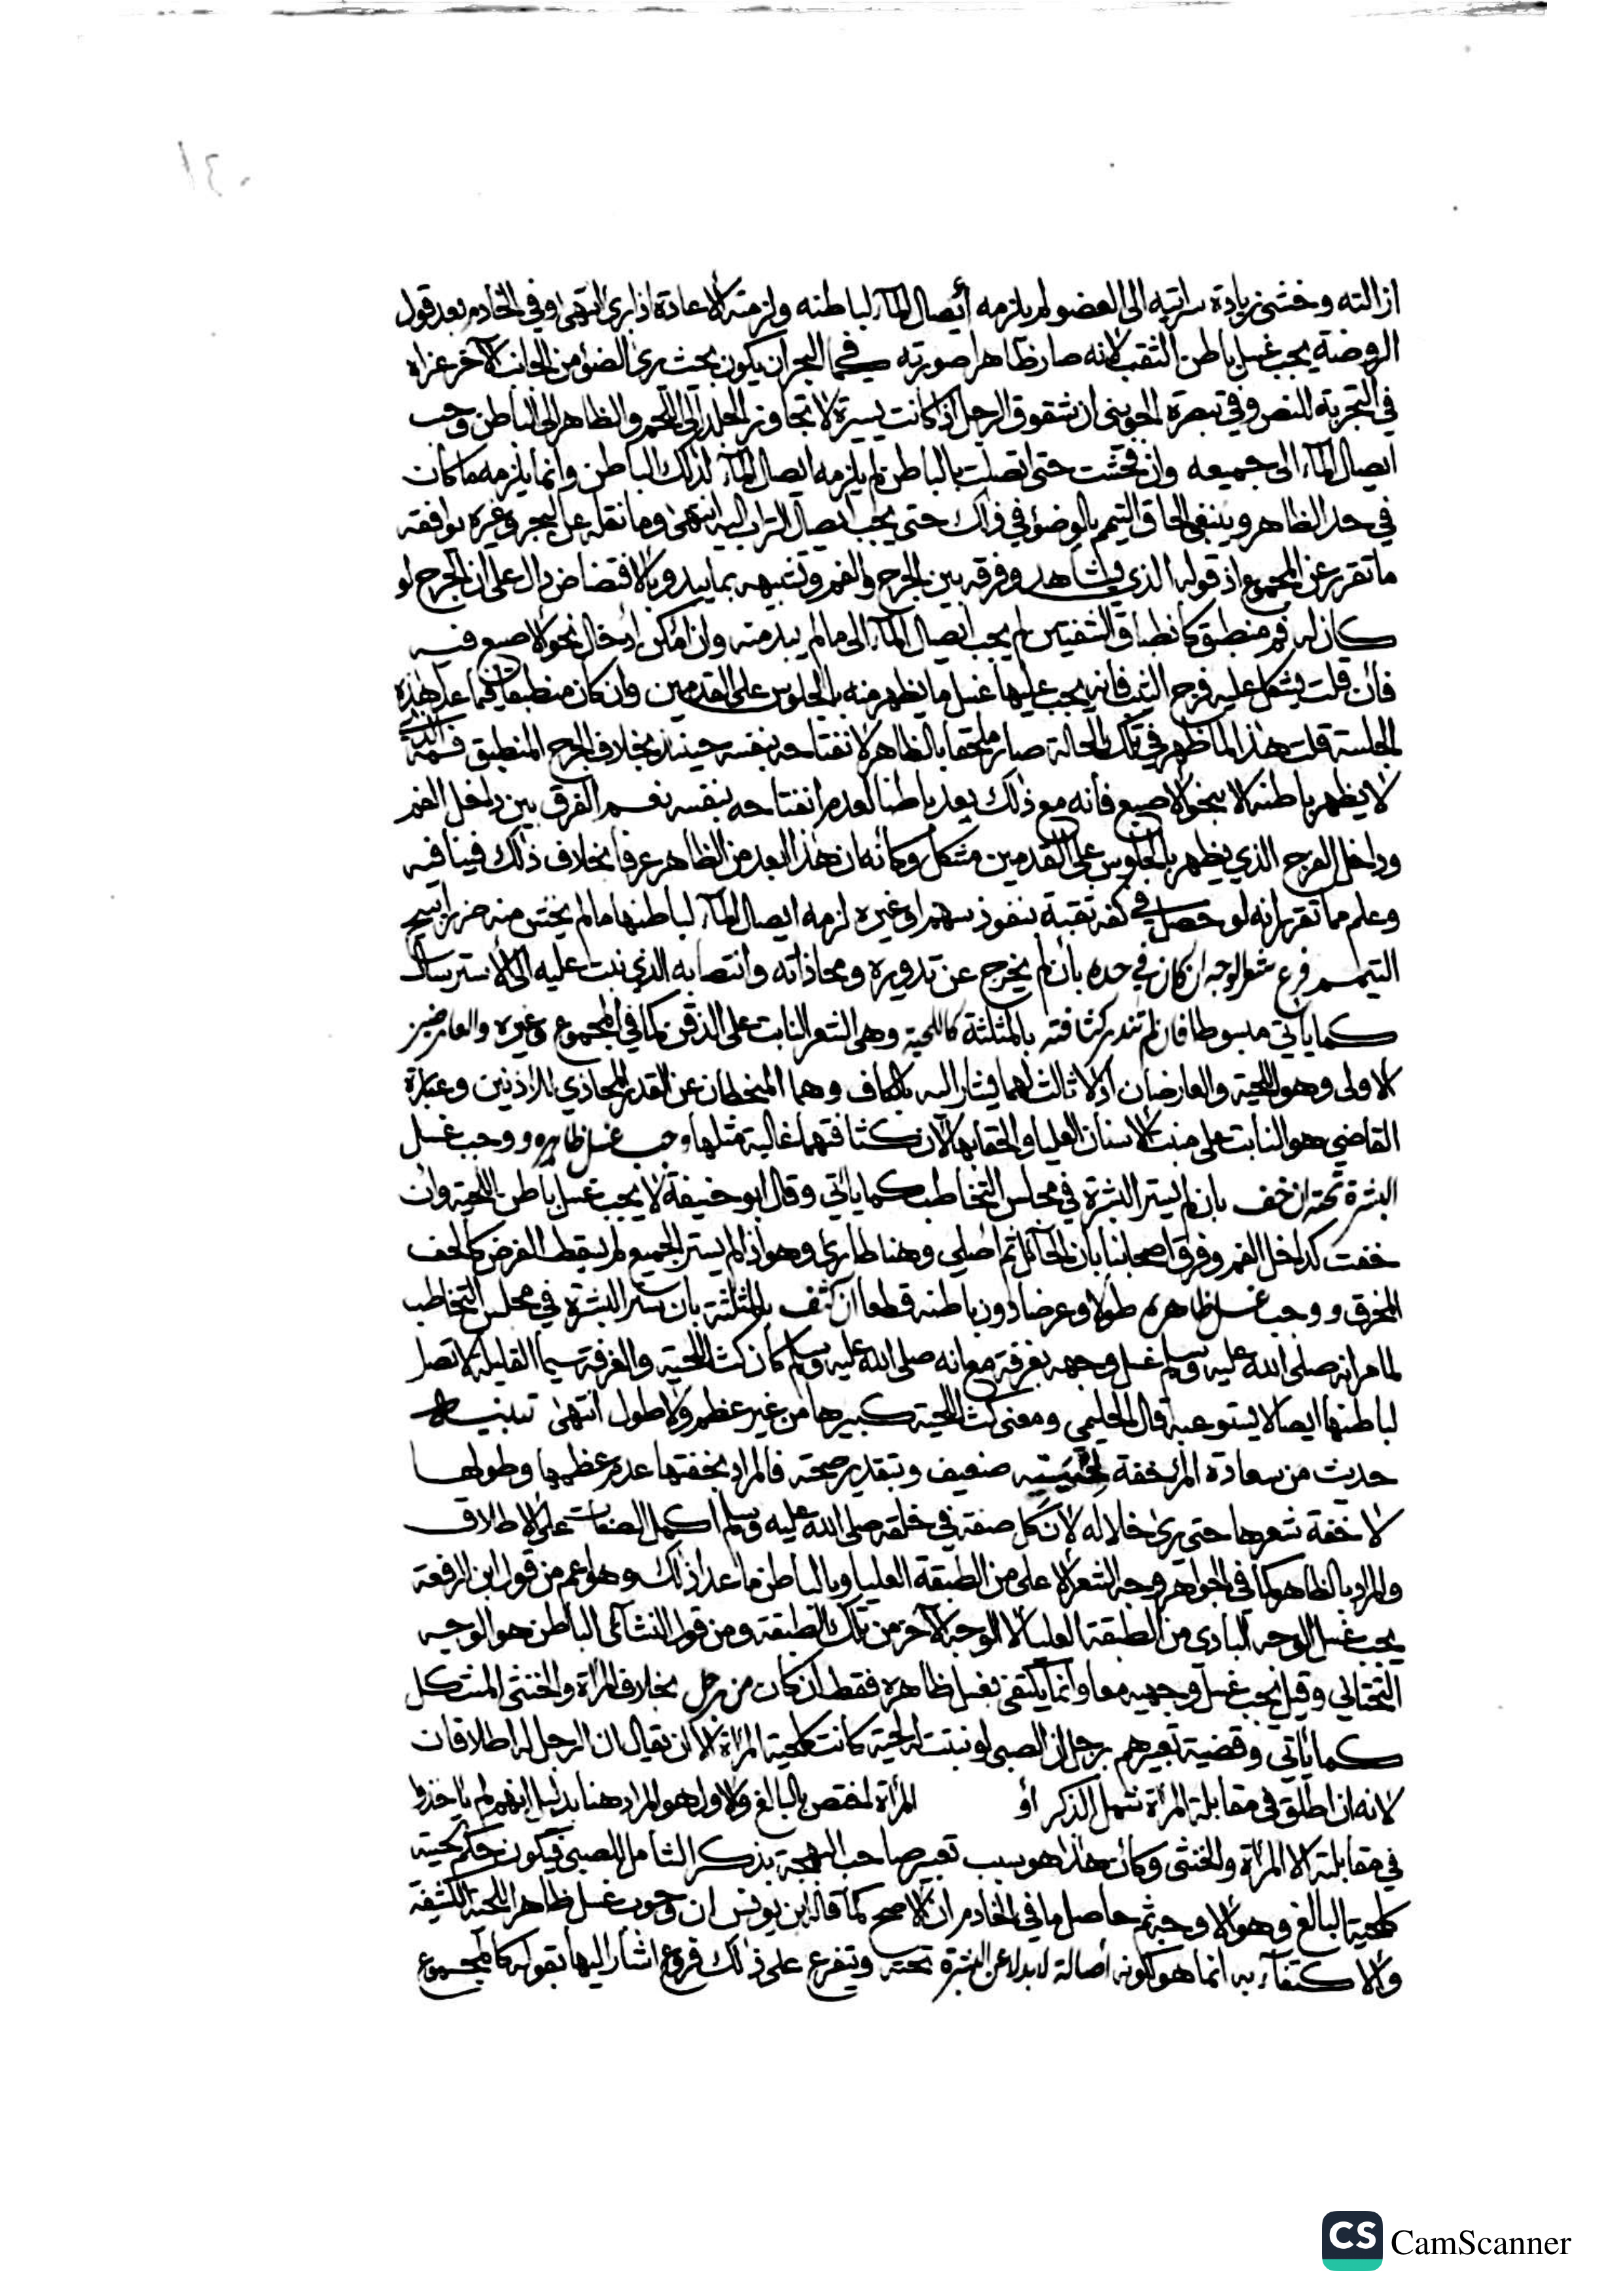 ازالته وخشي زيادة سرايته الى العضو لم يلزمه أيصال المآء لباطنه ولزمته الاعادة اذا برئ انتهى وفي الخادم بعد قول
الروضة يجب غسل باطن الثقب لانه صار ظاهرا صورته كما في البحر ان يكون بحيث يرى الضوء من الجانب الآخر عزاه
في التجربة للنص وفي تبصرة الجويني ان شقوق الرجل اذا كانت يسيرة لا تجاوز الجلد الى اللحم والظاهر الى الباطن وجب
ايصال المآء الى جميعه وان فحشت حتى اتصلت بالباطن لم يلزمه ايصال المآء لذلك الباطن وانما يلزمه ما كان
في حد الظاهر وينبغي الحاق التيمم بالوضوء في ذلك حتى يجب ايصال التراب اليه انتهى وما نقله عن البحر وغيره يوافقه
ما تقرر عن المجموع اذ قوله الذي يشاهد وفرقه بين الجرح والفم وتشبيهه بما يبدو بالافتضاض دال على ان الجرح لو
كان له فم منطبق كانطباق الشفتين لم يجب ايصال المآء الى ما لم يبد منه وان امكن إدخال نحو الاصبع فيه
فان قلت يشكل عليه فرج الثيب فانه يجب عليها غسل ما يظهر منه بالجلوس على القدمين وان كان منطبقا فيما عدا هذه
الجلسة قلت هذا لما ظهر في تلك الحالة صار ملحقا بالظاهر لانفتاحه بنفسه حينئذ بخلاف الجرح المنطبق فمه الذي
لا يظهر باطنه الا بنحو الاصبع فانه مع ذلك يعد باطنا لعدم انفتاحه بنفسه نعم الفرق بين داخل الفم
وداخل الفرج الذي يظهر بالجلوس على القدمين مشكل وكأنه ان هذا يعد من الظاهر عرفا بخلاف ذلك فينا فيه
وعلم مما تقرر انه لو حصل في كفه ثقبة بنفوذ سهم او غيره لزمه ايصال المآء لباطنها ما لم يخش منه ضررا يبيح
التيمم فرع شعر الوجه ان كان في حده بأن لم يخرج عن تدويره ومحاذاته وانتصابه الذي نبت عليه الى الاسترسال
كما يأتي مبسوطا فان لم تندر كثافته بالمثلثة كاللحية وهي الشعر النابت على الذقن كما في المجموع وغيره والعارضين
الاولى وهو اللحية والعارضان اذ لا ثالث لهما يشار اليه بالكاف وهما المنحطان عن القدر المحاذي للأذنين وعبارة
القاضي هو النابت على منبت الاسنان العليا والحقا بها لأن كثافتهما غالبة مثلها وجب غسل ظاهره ووجب غسل
البشرة تحته ان خف بان لم يستر البشرة في مجلس التخاطب كما يأتي وقال ابو حنيفة لا يجب غسل باطن اللحية وان
خفت كداخل الفم وفرق اصحابنا بأن الحائل ثم اصلي وهنا طارئ وهو اذا لم يستر الجميع لم يسقط الفرض كالخف
المخرق ووجب غسل ظاهره طولا وعرضا دون باطنه قطعا ان كثف بالمثلثة بان ستر البشرة في مجلس التخاطب
لما مر انه صلى الله عليه وسلم غسل وجهه بغرفة مع انه صلى الله عليه وسلم كان كث اللحية والغرفة سيما القليلة لا تصل
لباطنها ايصالا يستوعبه قال الحليمي ومعنى كث اللحية كبيرها من غير عظم ولا طول انتهى تنبيه
حديث من سعادة المرء خفة لحيته ضعيف وبتقدير صحته فالمراد بخفتها عدم عظمها وطولها
لا خفة شعرها حتى يرى خلاله لأن كل صفة في خلقه صلى الله عليه وسلم اكمل الصفات على الاطلاق
والمراد بالظاهر كما في الجواهر وجه الشعر الاعلى من الطبقة العليا وبالباطن ما عدا ذلك وهو اعم من قول ابن الرفعة
يجب غسل الوجه البادي من الطبقة العليا لا الوجه الآخر من تلك الطبقة ومن قول النشائي الباطن هو الوجه
التحتاني وقيل يجب غسل وجهيه معا وانما يكتفى بغسل ظاهره فقط ان كان من رجل بخلاف المرأة والخنثى المشكل
كما يأتي وقضية تعبيرهم برجل ان الصبي لو نبتت له لحية كانت كلحية المرأة الا ان يقال ان الرجل له اطلاقان
لانه ان اطلق في مقابلة المرأة شمل الذكر أو المرأة اختص بالبالغ والاول هو المراد هنا بدليل انهم لم يأخذوا
في مقابلته الا المرأة والخنثى وكأن هذا هو سبب تعبير صاحب البهجة بذكر الشامل للصبي فيكون حكم لحيته
كلحية البالغ وهو الاوجه ثم حاصل ما في الخادم ان الاصح كما قاله ابن يونس ان وجوب غسل ظاهر اللحية الكثيفة
والاكتفآء به انما هو لكونه أصالة لا بدلا عن البشرة تحته ويتفرع على ذلك فروع اشار اليها بقوله كالمجموع
CS CamScanner